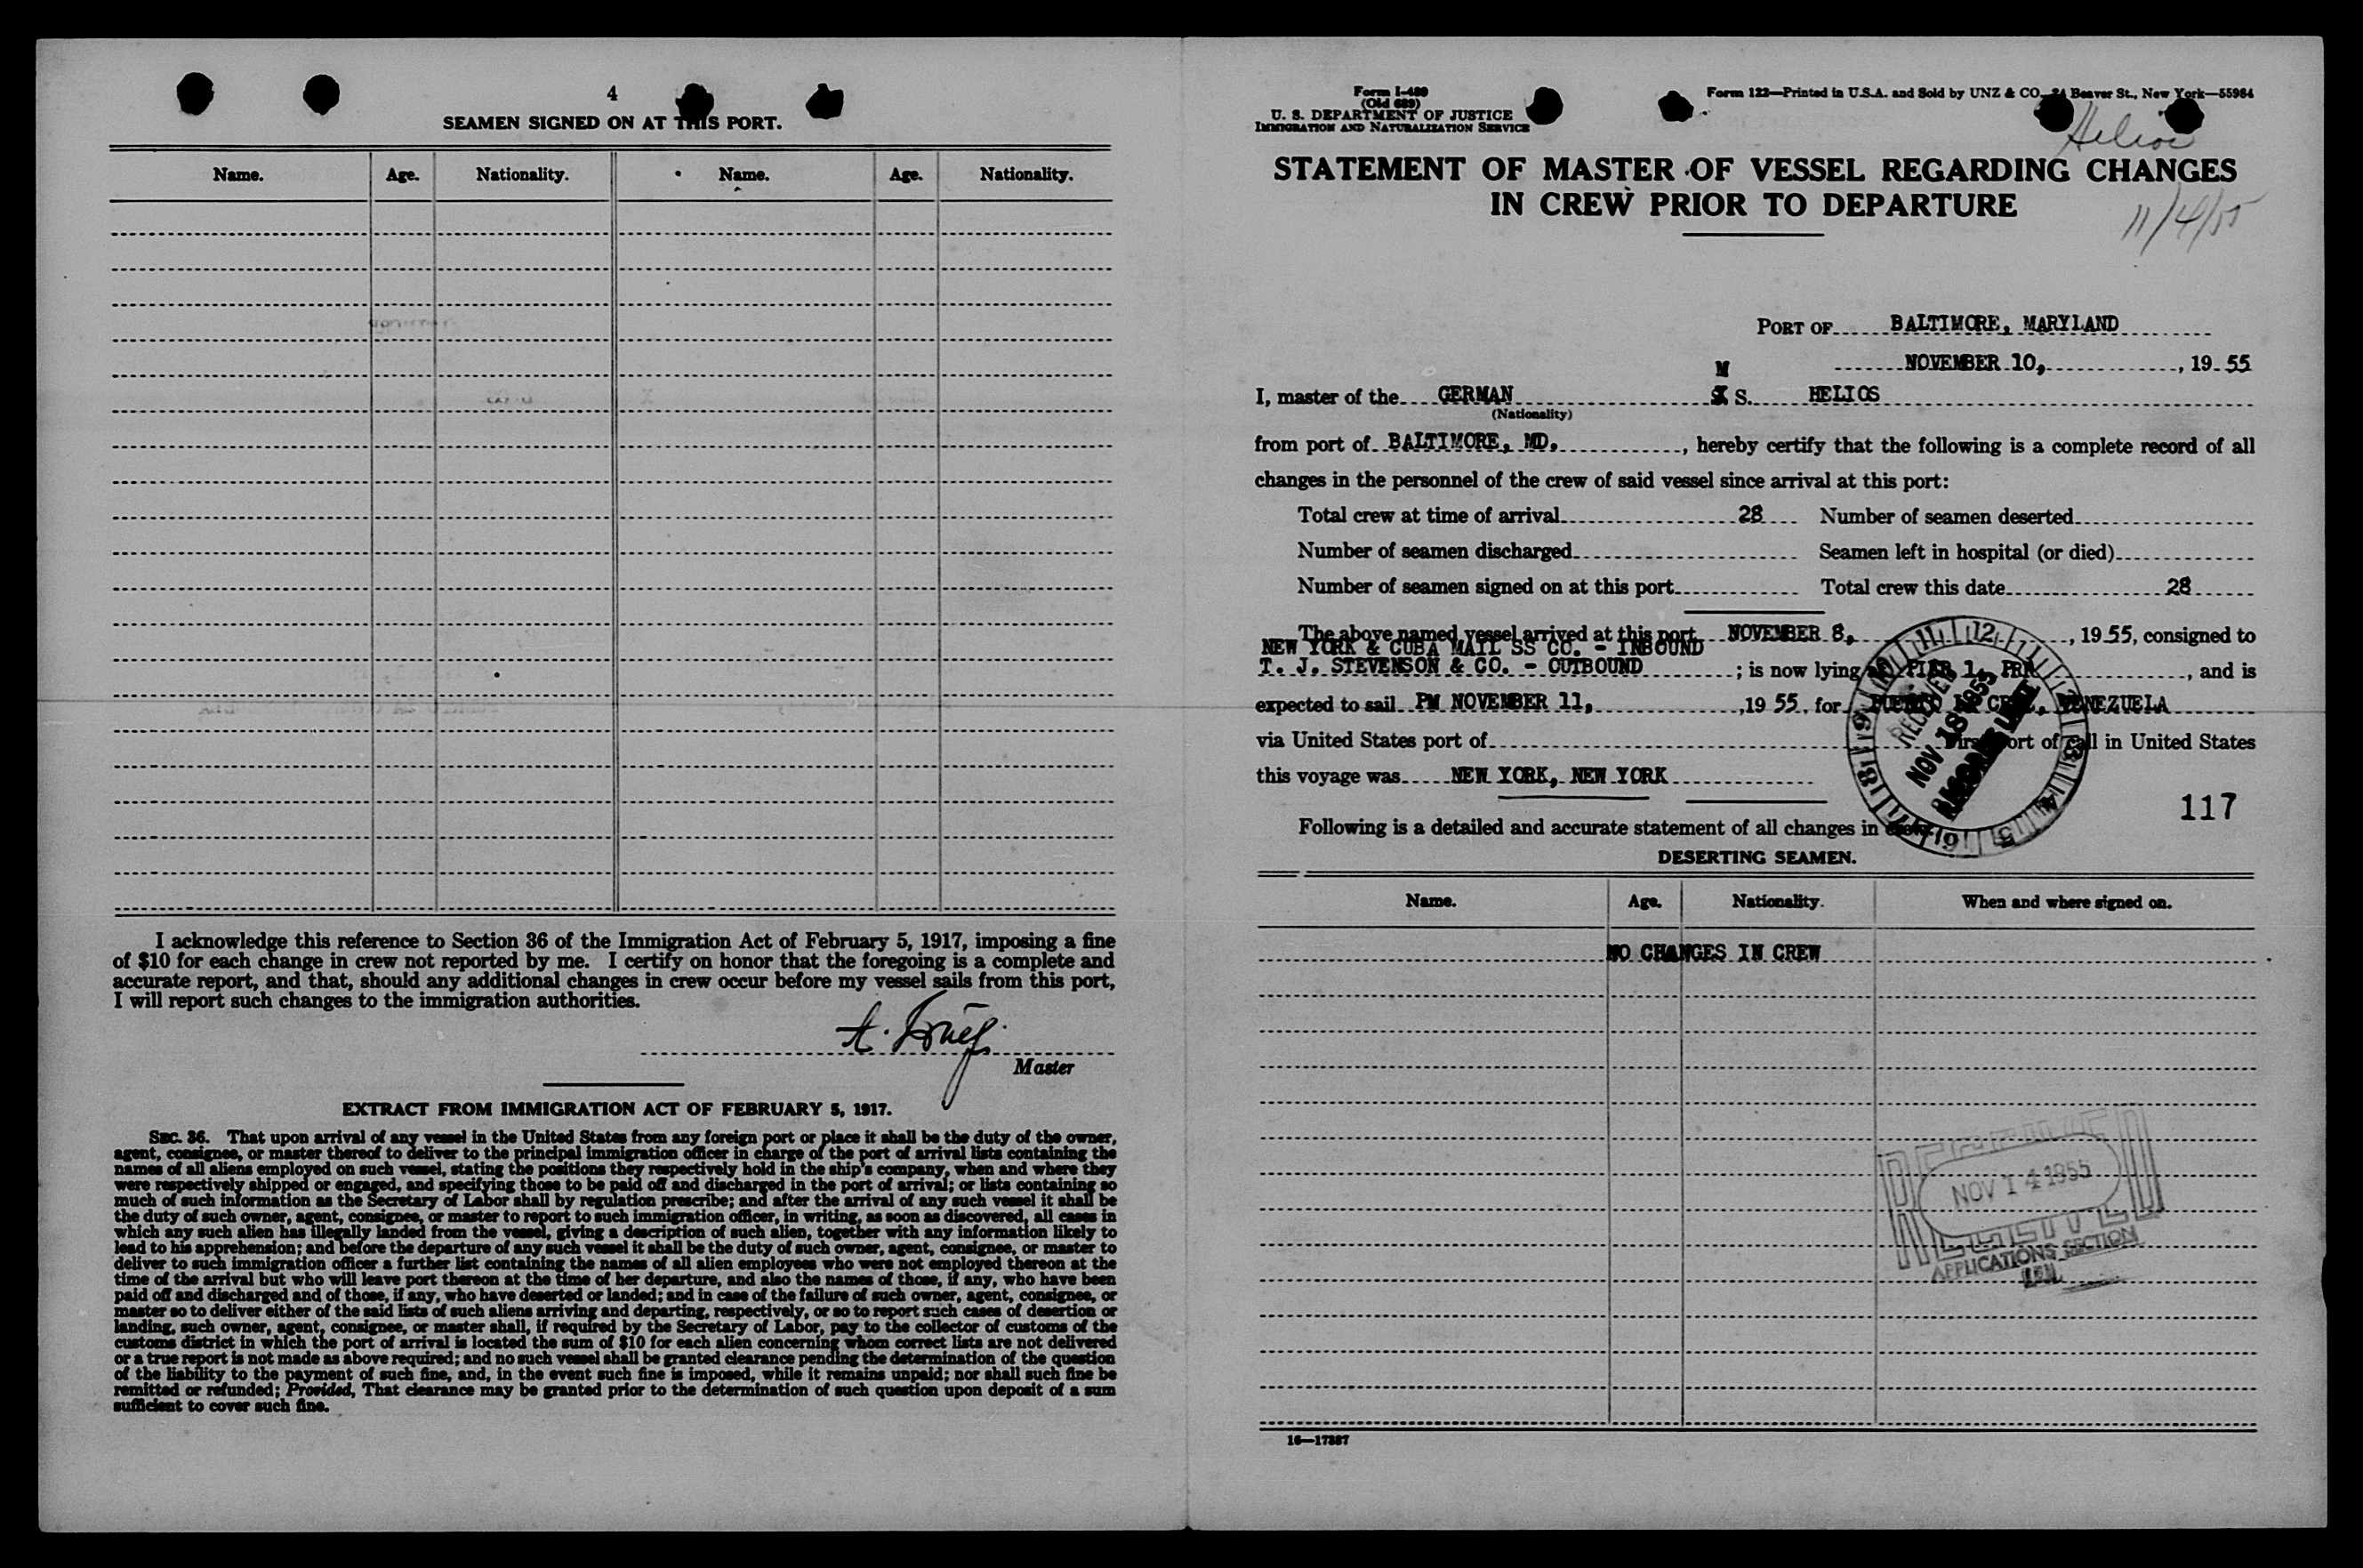 4
SEAMEN SIGNED ON AT THIS PORT.
Name. Age. Nationality. Name. Age. Nationality.
I acknowledge this reference to Section 36 of the Immigration Act of February 5, 1917, imposing a fine
of $10 for each change in crew not reported by me. I certify on honor that the foregoing is a complete and
accurate report, and that, should any additional changes in crew occur before my vessel sails from this port,
I will report such changes to the immigration authorities.
Master
EXTRACT FROM IMMIGRATION ACT OF FEBRUARY 5, 1917.
SEC. 36. That upon arrival of any vessel in the United States from any foreign port or place it shall be the duty of the owner,
agent, consignee, or master thereof to deliver to the principal immigration officer in charge of the port of arrival lists containing the
names of all aliens employed on such vessel, stating the positions they respectively hold in the ship's company, when and where they
were respectively shipped or engaged, and specifying those to be paid off and discharged in the port of arrival; or lists containing so
much of such information as the Secretary of Labor shall by regulation prescribe; and after the arrival of any such vessel it shall be
the duty of such owner, agent, consignee, or master to report to such immigration officer, in writing, as soon as discovered, all cases in
which any such alien has illegally landed from the vessel, giving a description of such alien, together with any information likely to
lead to his apprehension; and before the departure of any such vessel it shall be the duty of such owner, agent, consignee, or master to
deliver to such immigration officer a further list containing the names of all alien employees who were not employed thereon at the
time of the arrival but who will leave port thereon at the time of her departure, and also the names of those, if any, who have been
paid off and discharged and of those, if any, who have deserted or landed; and in case of the failure of such owner, agent, consignee, or
master so to deliver either of the said lists of such aliens arriving and departing, respectively, or so to report such cases of desertion or
landing, such owner, agent, consignee, or master shall, if required by the Secretary of Labor, pay to the collector of customs of the
customs district in which the port of arrival is located the sum of $10 for each alien concerning whom correct lists are not delivered
or a true report is not made as above required; and no such vessel shall be granted clearance pending the determination of the question
of the liability to the payment of such fine, and, in the event such fine is imposed, while it remains unpaid; nor shall such fine be
remitted or refunded; Provided, That clearance may be granted prior to the determination of such question upon deposit of a sum
sufficient to cover such fine.
Form I-489
(Old 689)
U. S. DEPARTMENT OF JUSTICE
IMMIGRATION AND NATURALIZATION SERVICE
Form 122—Printed in U.S.A. and Sold by UNZ & CO. 24 Beaver St., New York—55984
Helios
STATEMENT OF MASTER OF VESSEL REGARDING CHANGES
IN CREW PRIOR TO DEPARTURE
11/4/55
PORT OF BALTIMORE, MARYLAND
NOVEMBER 10, , 19 55
M
I, master of the GERMAN S. HELIOS
(Nationality)
from port of BALTIMORE, MD. , hereby certify that the following is a complete record of all
changes in the personnel of the crew of said vessel since arrival at this port:
Total crew at time of arrival 28 Number of seamen deserted
Number of seamen discharged Seamen left in hospital (or died)
Number of seamen signed on at this port Total crew this date 28
The above named vessel arrived at this port NOVEMBER 8, , 19 55, consigned to
NEW YORK & CUBA MAIL SS CO. - INBOUND
T. J. STEVENSON & CO. - OUTBOUND ; is now lying at PIER 1, PRR , and is
expected to sail PM NOVEMBER 11, , 19 55, for PUERTO LA CRUZ, VENEZUELA
via United States port of First port of call in United States
this voyage was NEW YORK, NEW YORK
RECEIVED
NOV 18 1955
117
Following is a detailed and accurate statement of all changes in crew:
DESERTING SEAMEN.
Name. Age. Nationality. When and where signed on.
NO CHANGES IN CREW
RECEIVED
NOV 14 1955
APPLICATIONS SECTION
16—17387